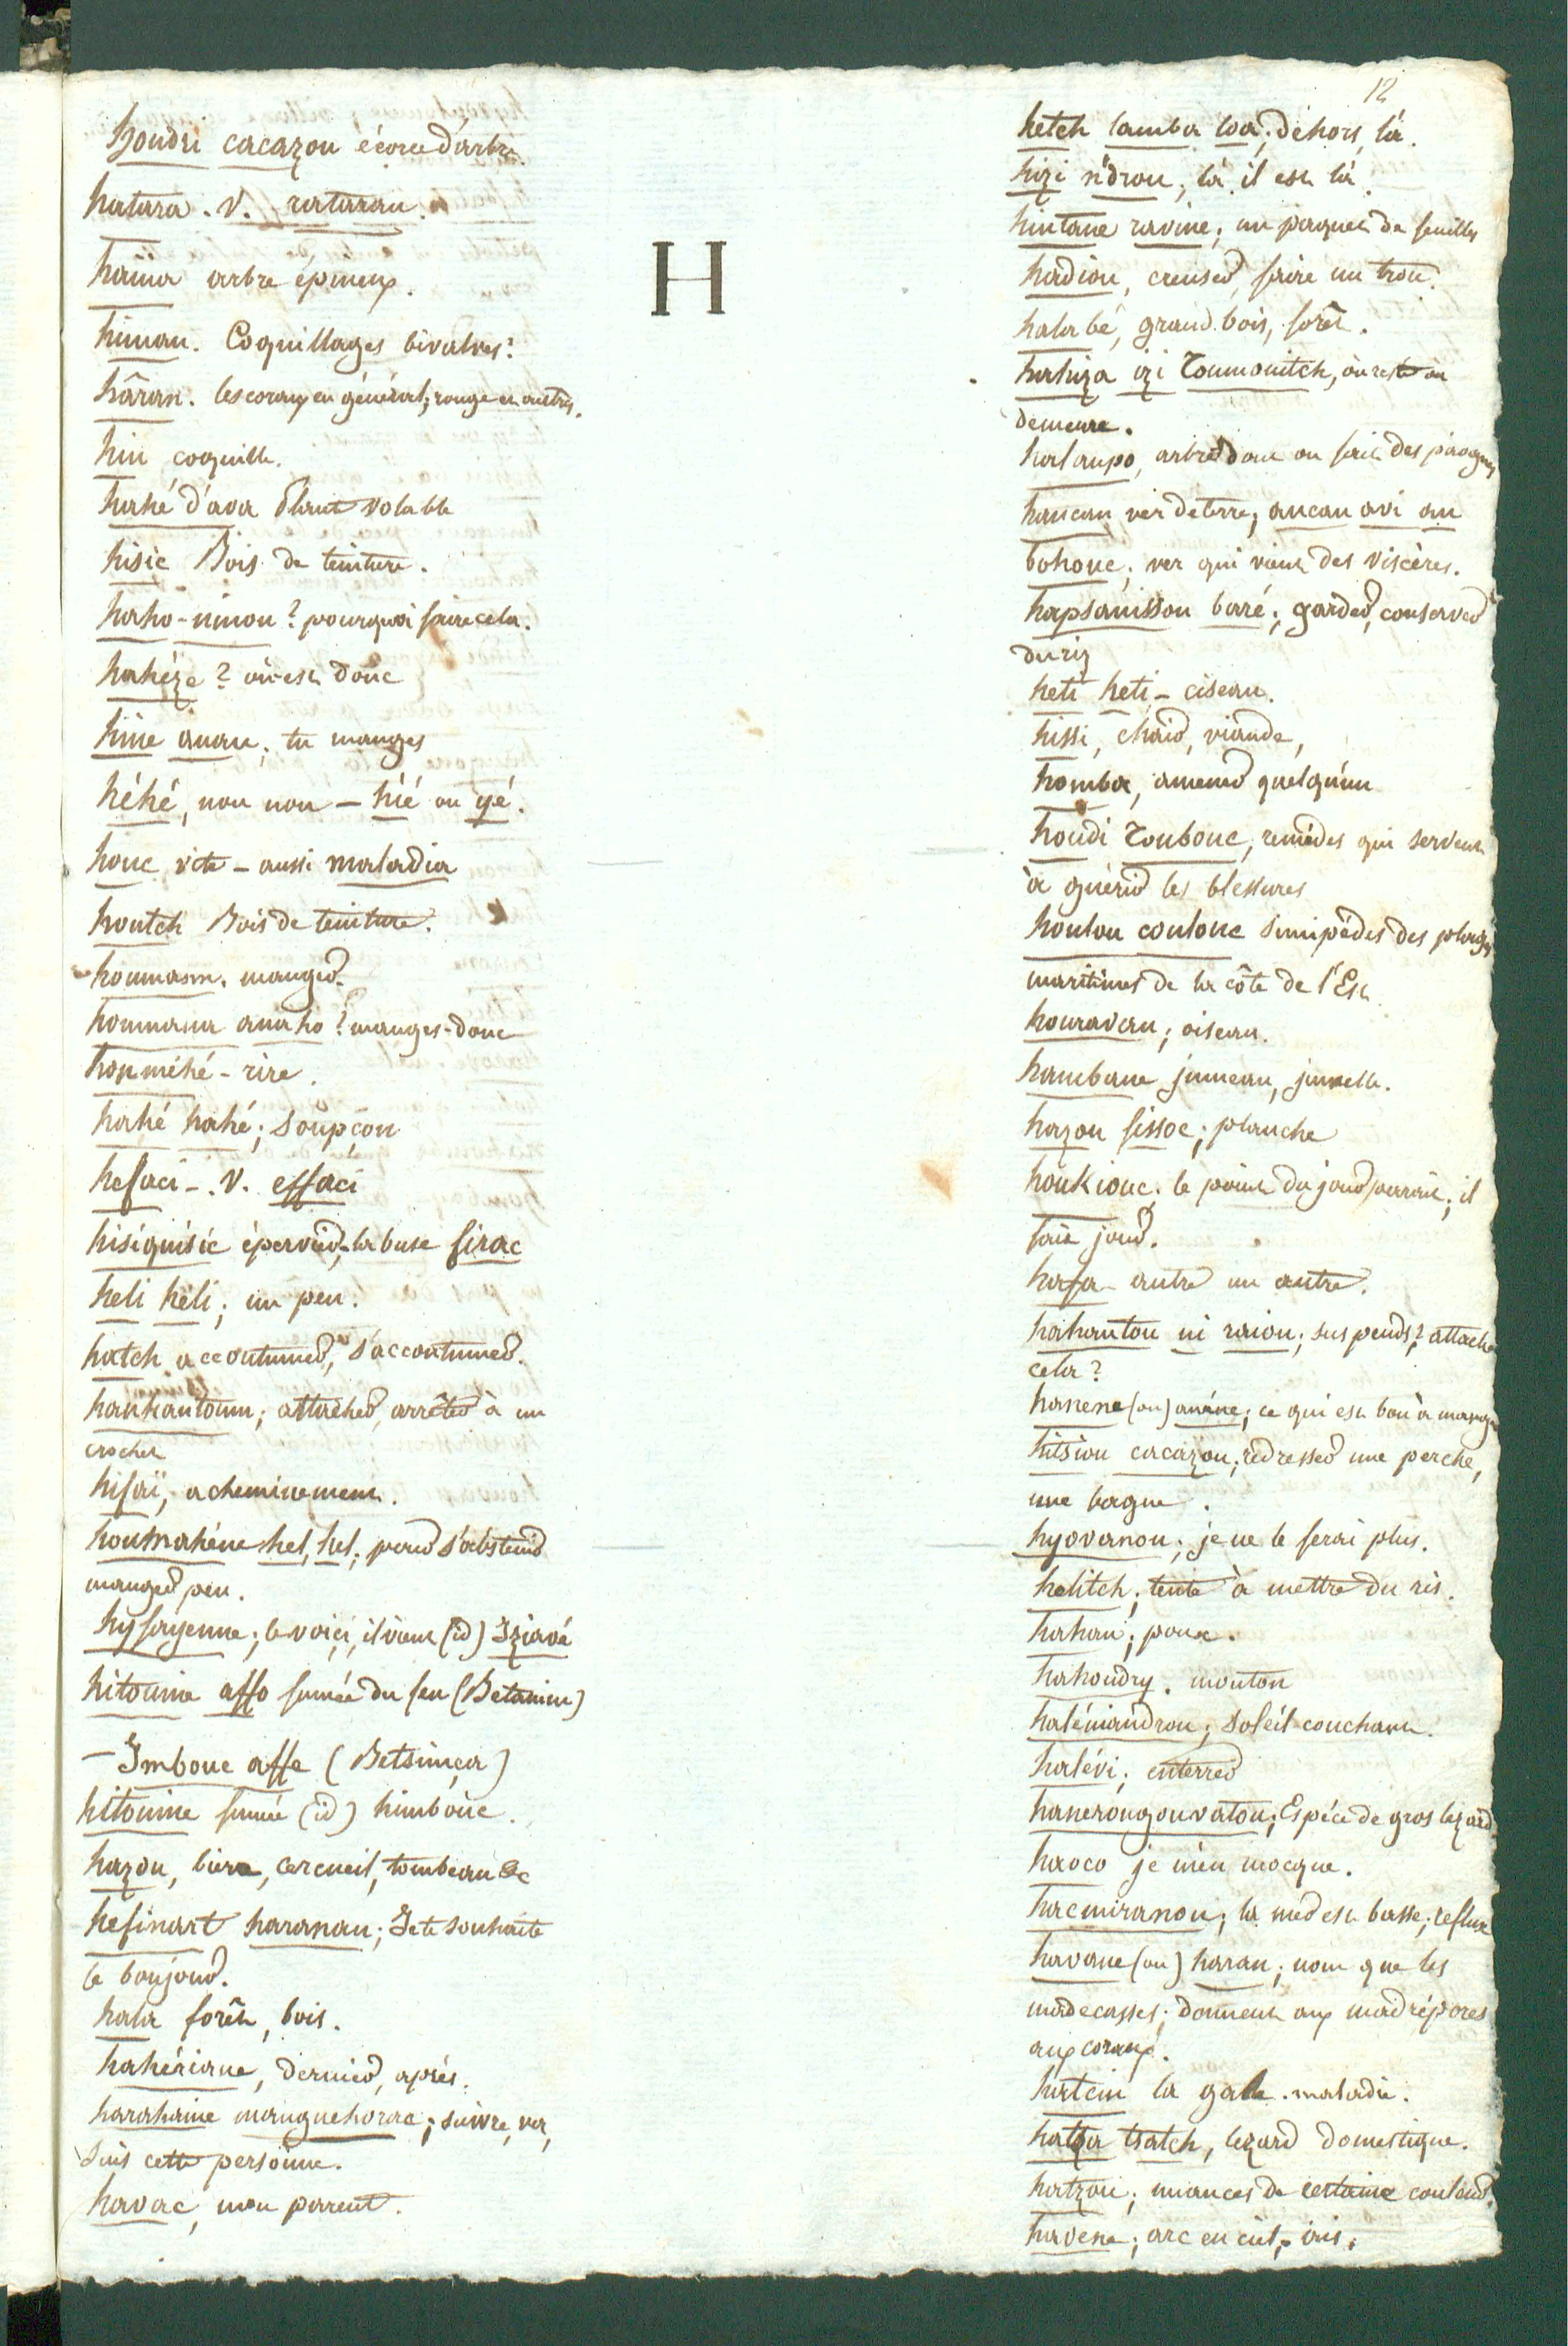 12
H
houdri cacazou écorce d'arbre
hatara . v. rataran.
haïïa arbre épineux.
himan. Coquillages bivalves.
hâran. les coraux en général; rouge et autres.
hin coquille.
hahé d'ava Plante volable
hisic Bois de teinture.
haho-ninou? pourquoi faire cela.
hahéze? où est donc
hine anau; tu manges
héhé, non non – hié ou yé.
houc vite – aussi maladia
houtch Bois de teinture.
houmasm. manger.
houmana anaho? manges-donc
houméhé – rire.
hahé hahé; soupçon
hefaci –. v. effaci
hisiquisic épervier, la buse firac
heli héli; un peu.
hatch accoutumer, s'accoutumer.
hanhantoum; attacher, arrêter à un
crochet
hifaï, acheminement.
houmahéne hel, hel; pour s'abstenir
manger peu.
hyfayenne; le voici, il vient (id) Iziavé
hitouine affo fumée du feu (Betanim)
– Imboue affe (Betsimçia)
hitouine fumée (id) himboüc.
hazou, bière, cercueil, tombeau &c
hefinart haranau; Je te souhaite
le bonjour.
hala forêt, bois.
hahériane, dernier, après.
harahaine manguehorac; suivre, va,
suis cette personne.
havac, mon parent.
hetch lamba loa; dehors, là.
hizi n'drou; là, il est là.
hintane ravine; un paquet de feuilles
hadiou, creuser, faire un trou.
hala bé, grand bois, forêt.
haliza izi Toumouitch, où reste où
demeure.
halaupo, arbre dont on fait des pirogues
hancan ver de terre; ancan avi an
bohouc; ver qui vient des viscères.
hapsanissou baré; garder, conserver
du riz
heti heti – ciseau.
hissi, chair, viande,
homba, amener quelqu'un
houdi Toubouc, remèdes qui servent
à guérir les blessures
houlou coulouc simipèdes des plages
maritimes de la côte de l'Est
houravan; oiseau.
hambane jumeau, jumelle.
hazou fissoc; planche
houkiouc; le point du jour paroit; il
fait jour.
hafa autre un autre.
hahantou ni raiou; suspends? attache
cela?
hanene (ou) anéne; ce qui est bon à manger
hitsiou cacazou; redresser une perche,
une bague.
hyovanou; je ne le ferai plus.
helitch; tente à mettre du ris.
hahau; poux.
hahoudry. mouton
halémandrou; soleil couchant.
halévi; enterrer
hanerougouvatou; Espèce de gros lezard
haoco je m'en mocque.
hacmiranou; la mer est basse; reflux
havane (ou) haran; nom que les
madecasses; donnent aux madrépores
aux coraux.
hatein la gale. maladie.
hatsa tsatch, lezard domestique.
hatzou; nuances de certaine couleur.
havene; arc en ciel, iris.